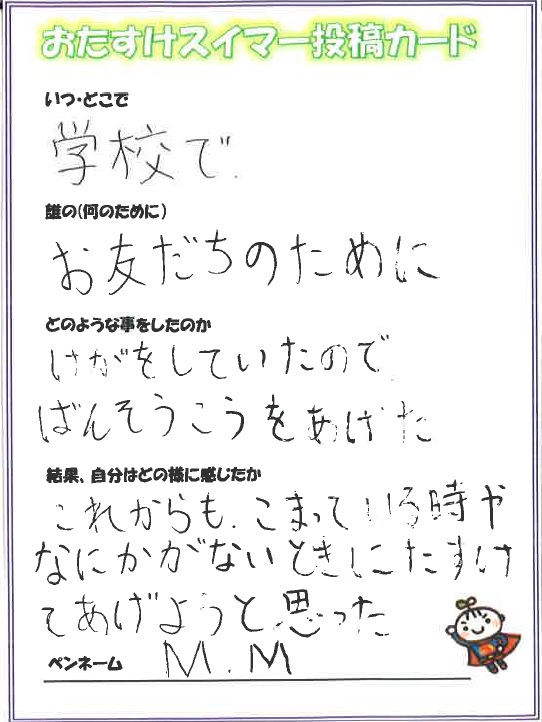 おたすけスイマー投稿カード
いつ・どこで
学校で.
誰の(何のために)
お友だちのために
どのような事をしたのか
けがをしていたので
ばんそうこうをあげた
結果、自分はどの様に感じたか
これからも、こまっている時や
なにかがないときにたすけ
てあげようと思った
ペンネーム M.M